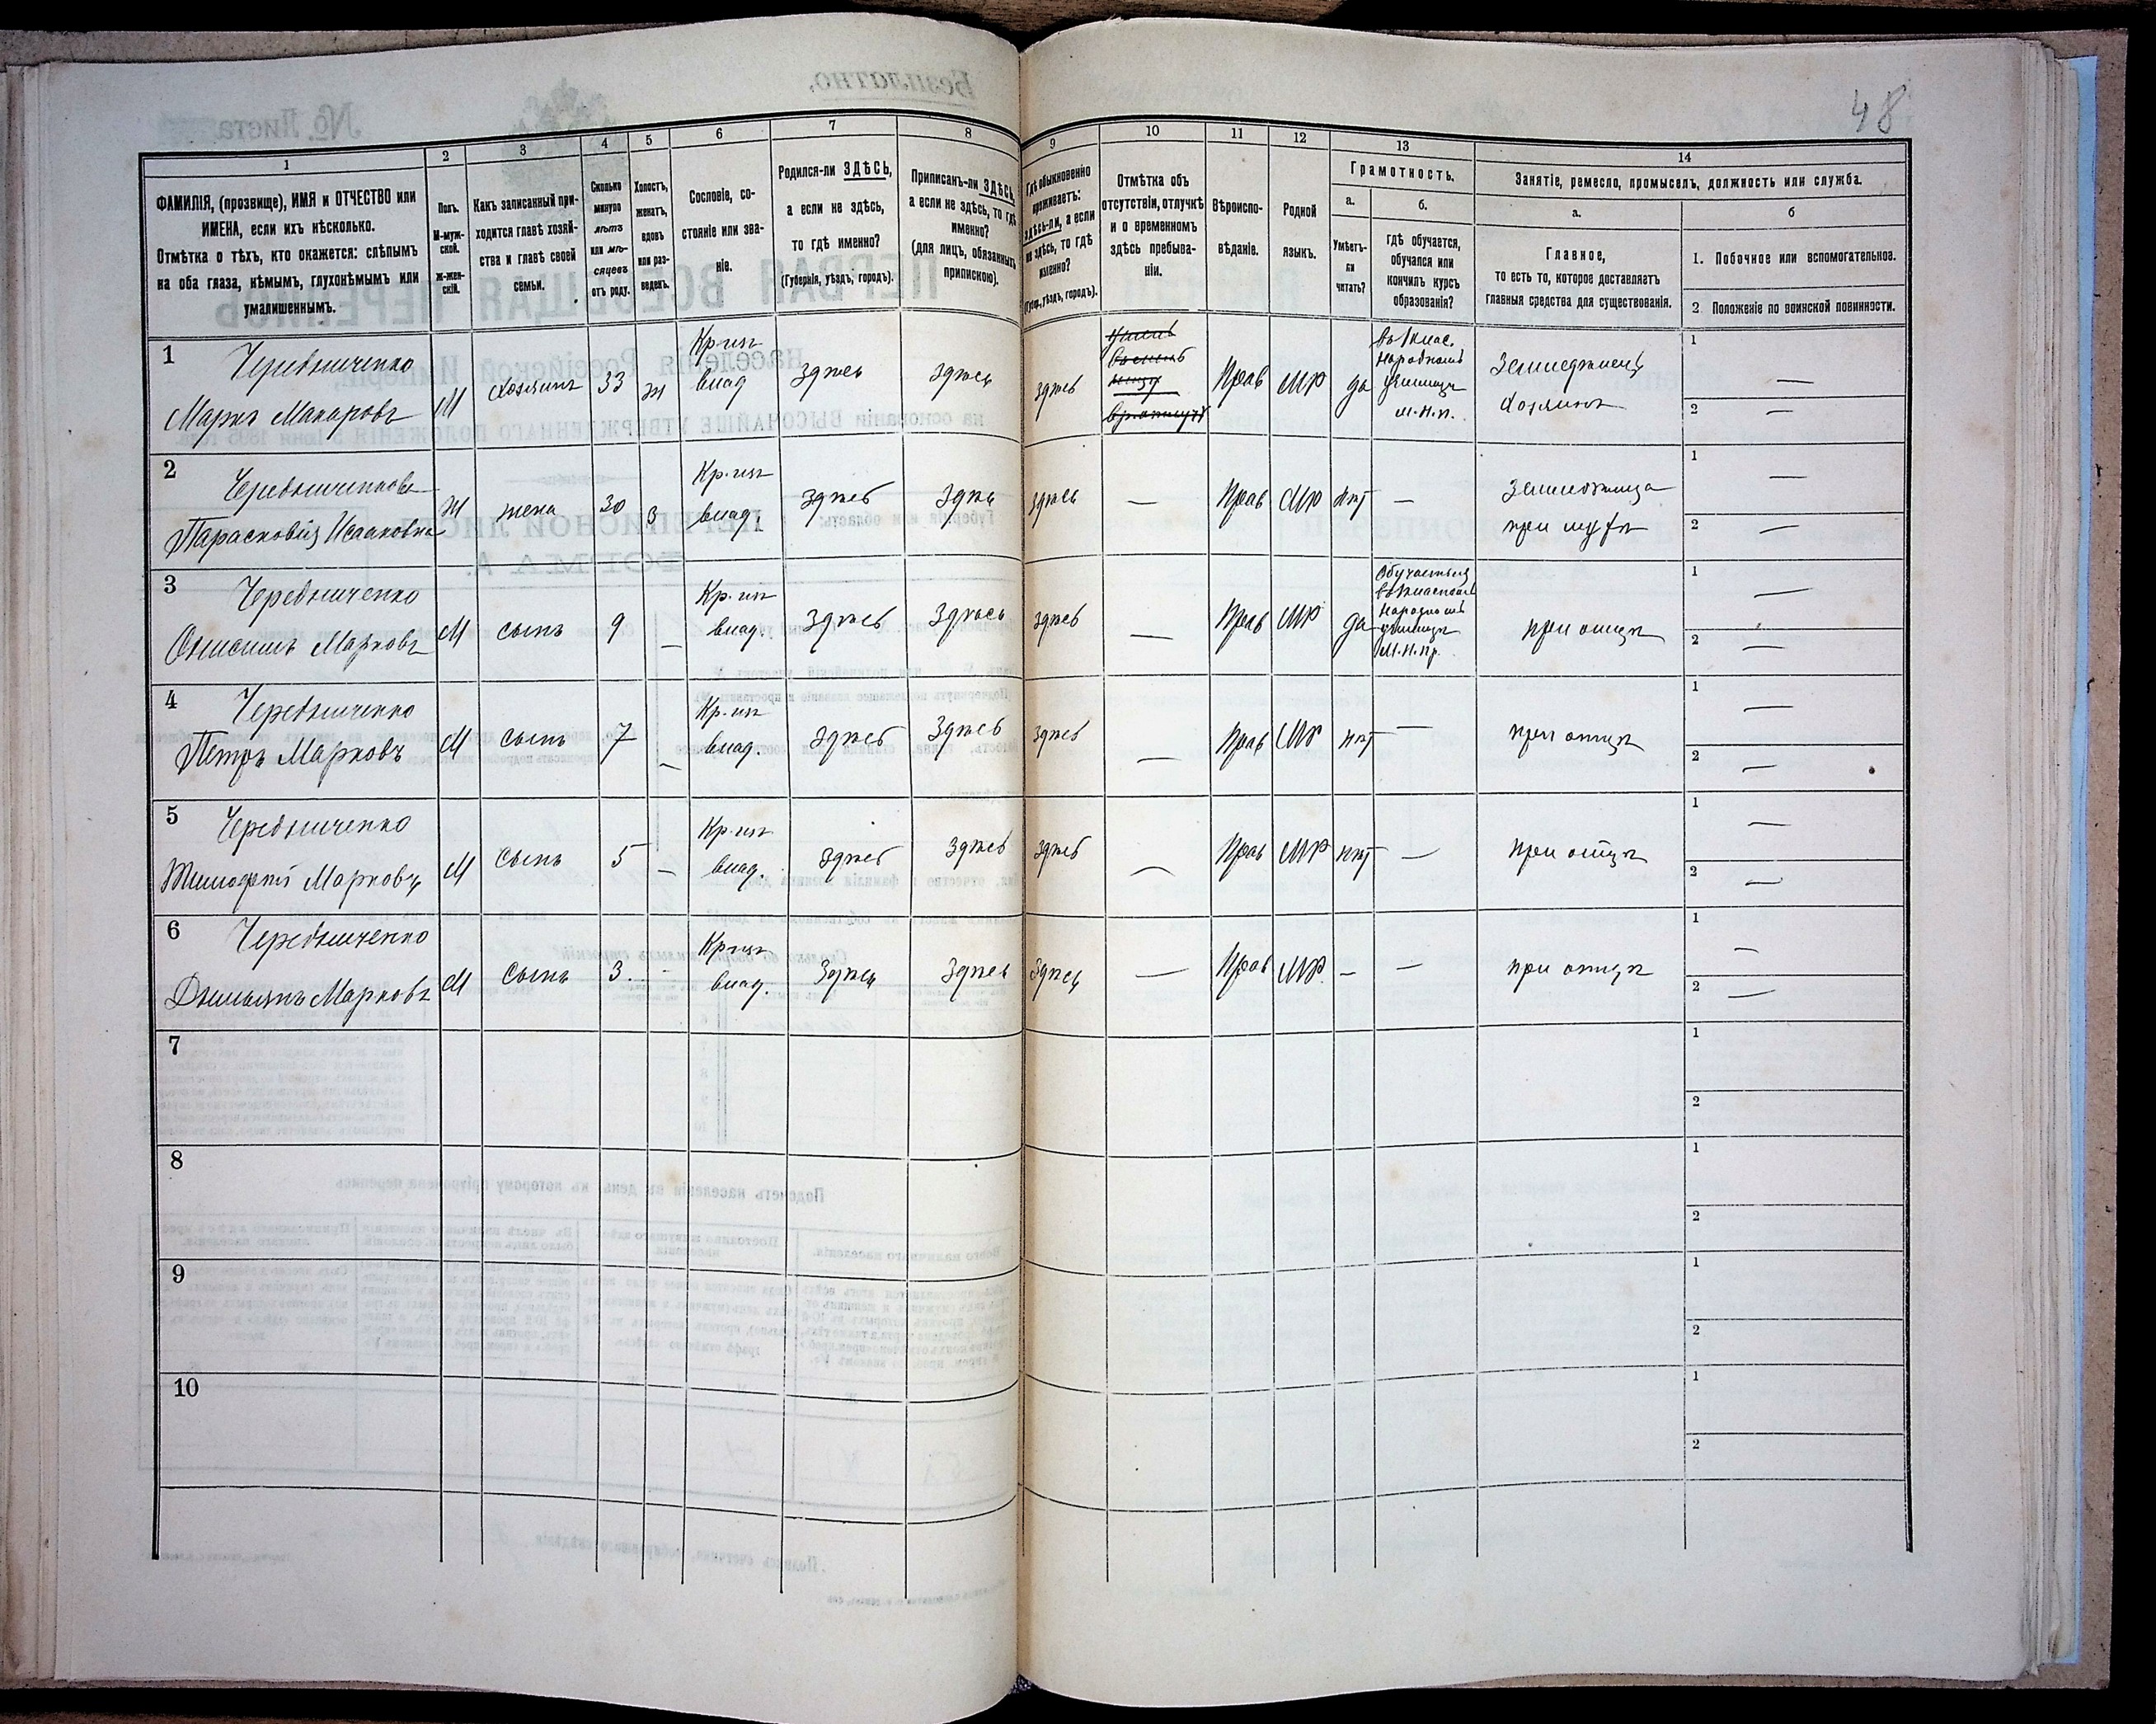 48
1
2
3
4
5
6
7
8
9
10
11
12
13
14
ФАМИЛІЯ, (прозвище), ИМЯ и ОТЧЕСТВО или
ИМЕНА, если ихъ нѣсколько.
Отмѣтка о тѣхъ, кто окажется: слѣпымъ
на оба глаза, нѣмымъ, глухонѣмымъ или
умалишеннымъ.
Полъ.
М-муж-
ской.
Ж-жен-
скій.
Какъ записанный при-
ходится главѣ хозяй-
ства и главѣ своей
семьи.
Сколько
минуло
лѣтъ
или мѣ-
сяцевъ
отъ роду.
Холостъ,
женатъ,
вдовъ
или раз-
веденъ.
Сословіе, со-
стояніе или зва-
ніе.
Родился-ли ЗДѢСЬ,
а если не здѣсь,
то гдѣ именно?
(Губернія, уѣздъ, городъ).
Приписанъ-ли ЗДѢСЬ,
а если не здѣсь, то гдѣ
именно?
(для лицъ, обязанныхъ
припискою).
Гдѣ обыкновенно
проживаетъ:
здѣсь-ли, а если
не здѣсь, то гдѣ
именно?
(Губ., уѣздъ, городъ).
Отмѣтка объ
отсутствіи, отлучкѣ
и о временномъ
здѣсь пребыва-
ніи.
Вѣроиспо-
вѣданіе.
Родной
языкъ.
Грамотность.
а.
Умѣетъ-
ли
читать?
б.
гдѣ обучается,
обучался или
кончилъ курсъ
образованія?
Занятіе, ремесло, промыселъ, должность или служба.
а.
Главное,
то есть то, которое доставляетъ
главныя средства для существованія.
б
1. Побочное или вспомогательное.
2 Положеніе по воинской повинности.
1
Чередниченко
Маркъ Макаровъ
М
хозяинъ
33
ж
Кр-нъ
влад
здѣсь
здѣсь
здѣсь
Прав
МР
да
народномъ
училищѣ
М.Н.П.
Земледѣлецъ
Хозяинъ
1 —
2 —
2
Чередниченкова
Парасковія Исааковна
Ж
жена
30
З
Кр-нъ
влад.
здѣсь
здѣсь
здѣсь
—
Прав
МР
нѣт
—
при мужѣ
1 —
2 —
3
Чередниченко
Онисимъ Марковъ
М
сынъ
9
—
Кр-нъ
влад.
здѣсь
здѣсь
здѣсь
—
Прав
МР
да
Обучается
народномъ
училищѣ
М.Н.Пр.
при отцѣ
1 —
2 —
4
Чередниченко
Петръ Марковъ
М
сынъ
7
—
Кр-нъ
влад.
здѣсь
здѣсь
здѣсь
—
Прав
МР
нѣт
—
при отцѣ
1 —
2 —
5
Чередниченко
Тимофей Марковъ
М
сынъ
5
—
Кр-нъ
влад.
здѣсь
здѣсь
здѣсь
—
Прав
МР
нѣт
—
при отцѣ
1 —
2 —
6
Чередниченко
Демьянъ Марковъ
М
сынъ
3.
-
Кр-нъ
влад.
здѣсь
здѣсь
здѣсь
—
Прав
МР.
—
—
при отцѣ
1 —
2 —
7
1
2
8
1
2
9
1
2
10
1
2